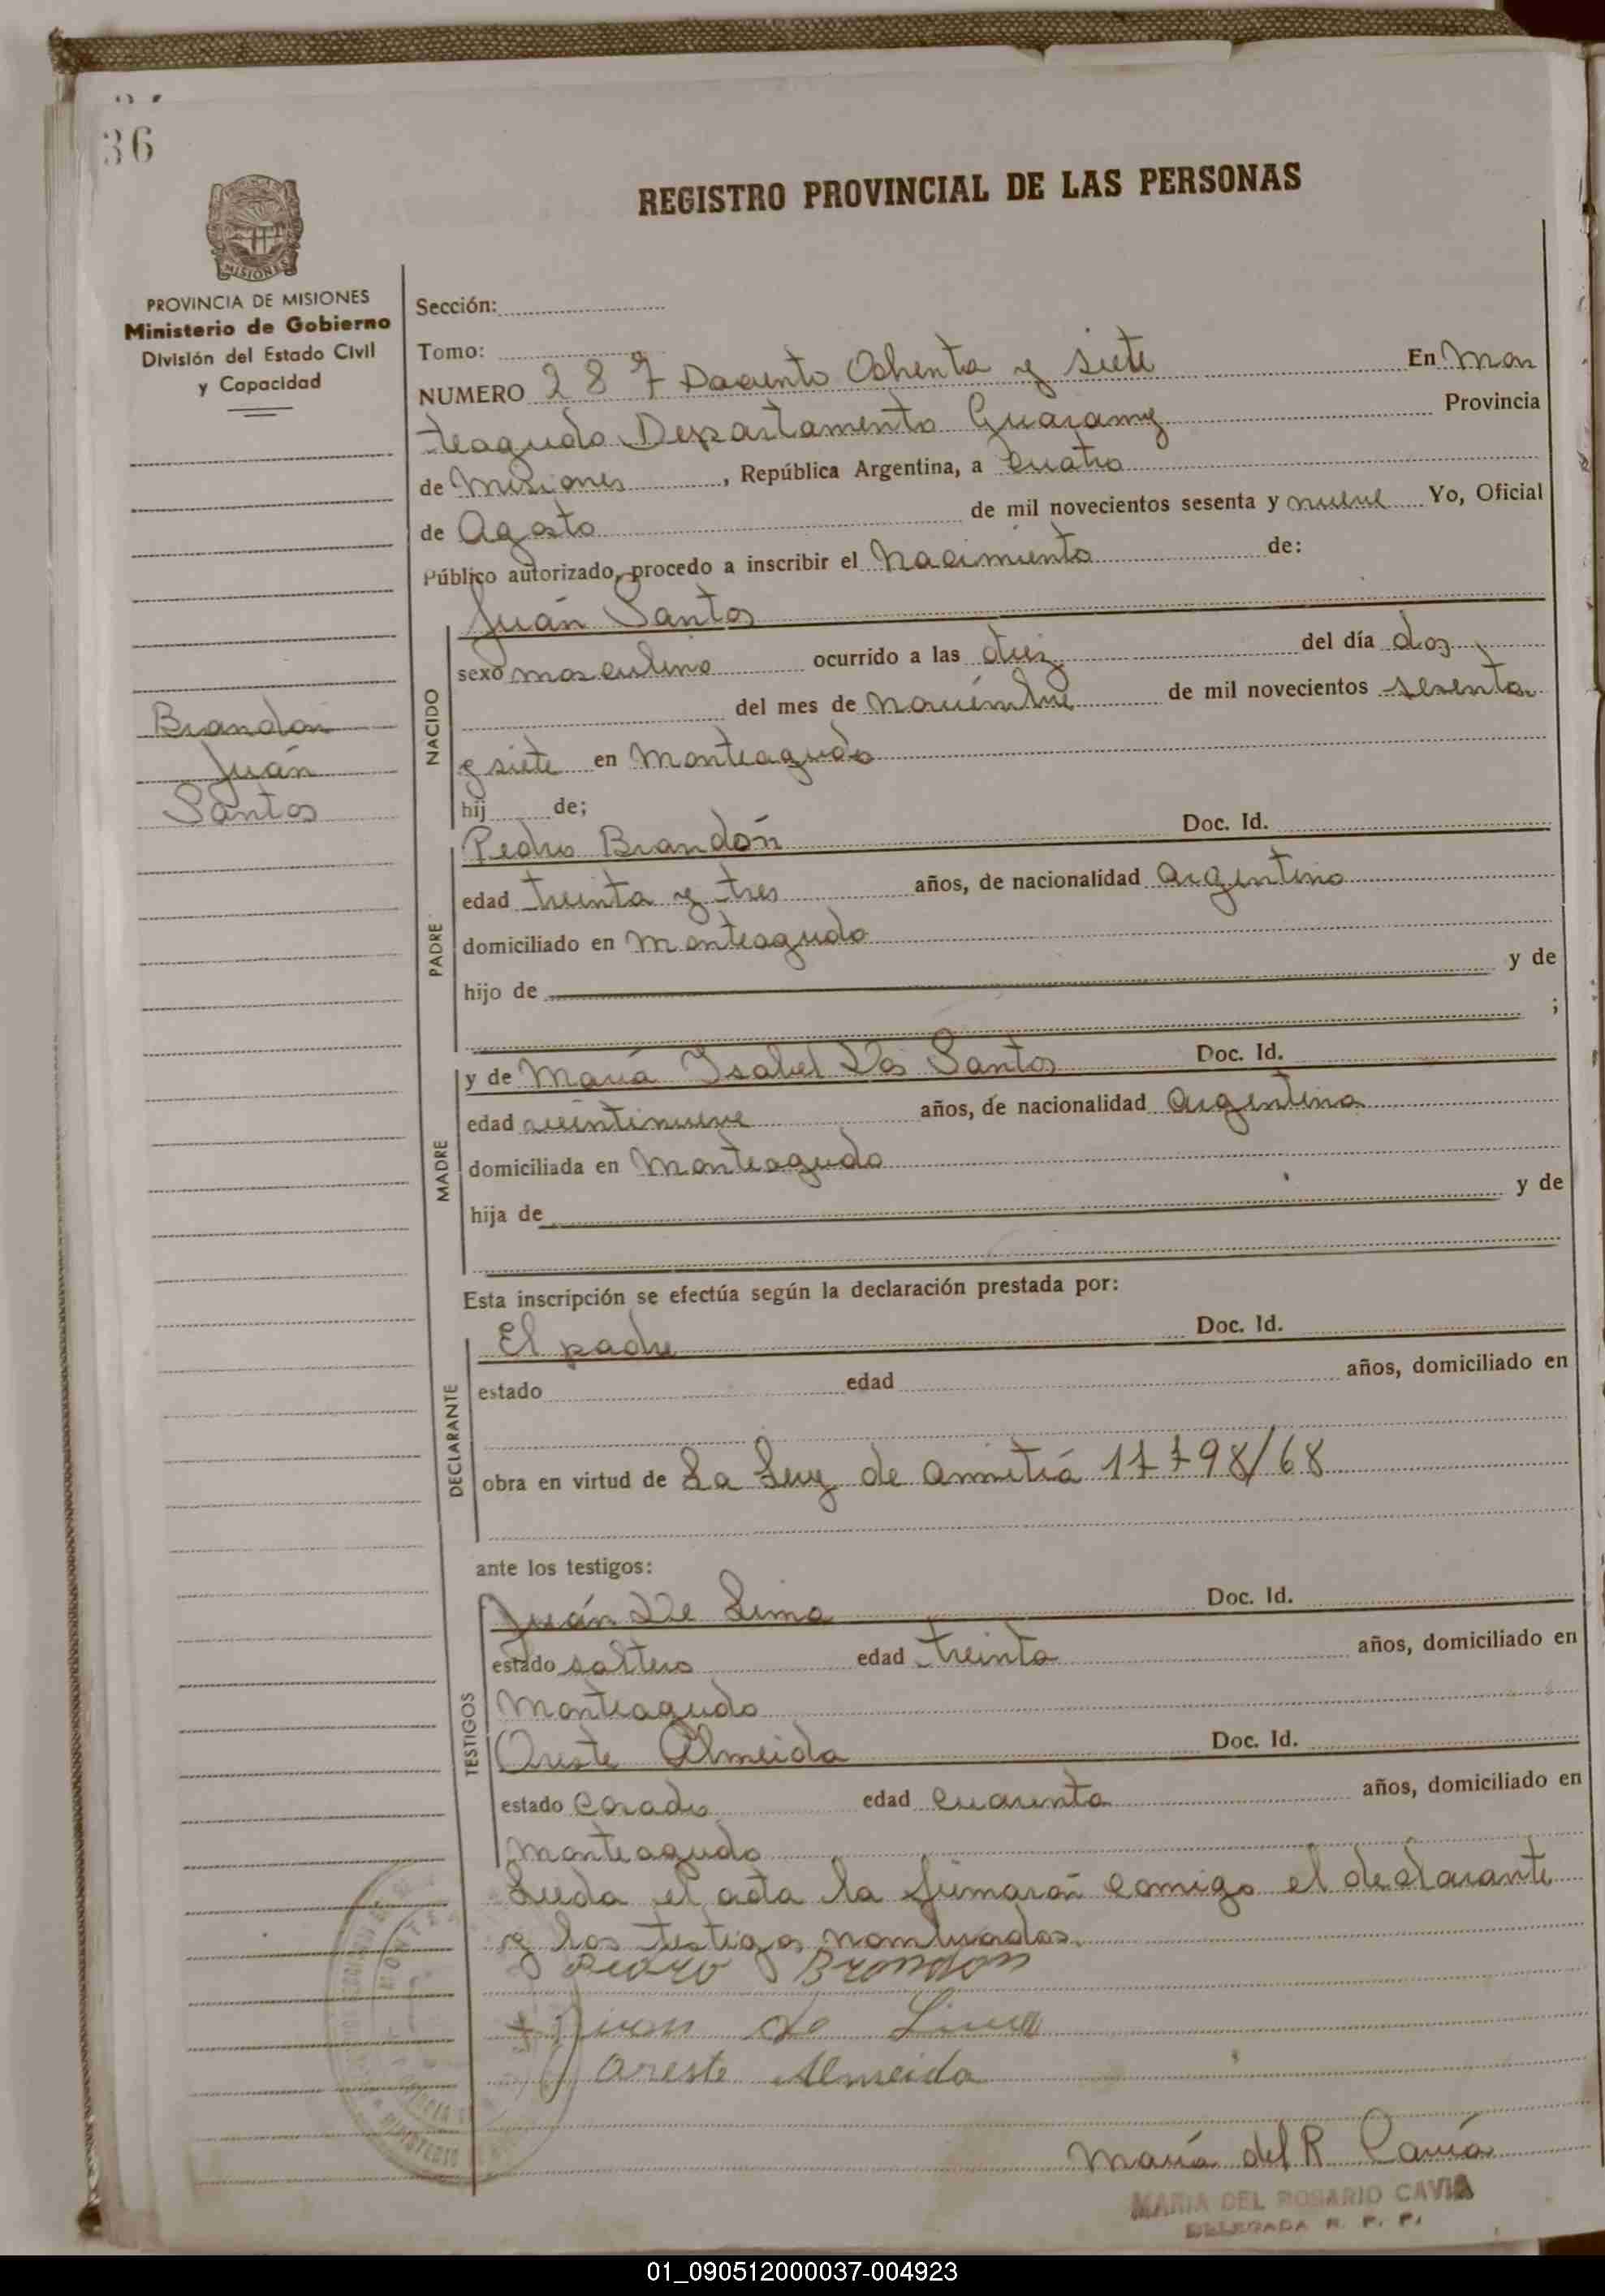 36
REGISTRO PROVINCIAL DE LAS PERSONAS
MISIONES
PROVINCIA DE MISIONES
Ministerio de Gobierno
División del Estado Civil
y Capacidad
Brandón
Juán
Santos
Sección:
Tomo:
NUMERO 287 Dociento Ochenta y siete En Mon
teagudo Departamento Guarany Provincia
de Misiones, República Argentina, a Cuatro
de Agosto de mil novecientos sesenta y nueve Yo, Oficial
Público autorizado, procedo a inscribir el Nacimiento de:
Juán Santos
NACIDO
sexo masculino ocurrido a las diez del día dos
del mes de Noviembre de mil novecientos sesenta
y siete en Monteagudo
hij de;
PADRE
Pedro Brandón Doc. Id.
edad treinta y tres años, de nacionalidad Argentino
domiciliado en Monteagudo
hijo de y de
;
MADRE
y de María Isabel Dos Santos Doc. Id.
edad veintinueve años, de nacionalidad Argentina
domiciliada en Monteagudo
hija de y de
Esta inscripción se efectúa según la declaración prestada por:
DECLARANTE
El padre Doc. Id.
estado edad años, domiciliado en
obra en virtud de La Ley de amnitiá 17798/68
ante los testigos:
TESTIGOS
Juán De Lima Doc. Id.
estado soltero edad treinta años, domiciliado en
Monteagudo
Oreste Almeida Doc. Id.
estado Casado edad cuarenta años, domiciliado en
Monteagudo
Leeda el acta la firmarán comigo el declarante
y los testigos nombrados.
Pedro Brandon
Juan de Lima
Oreste Almeida
María del R Cavia
MARIA DEL ROSARIO CAVIA
DELEGADA R. P. P.
01_090512000037-004923